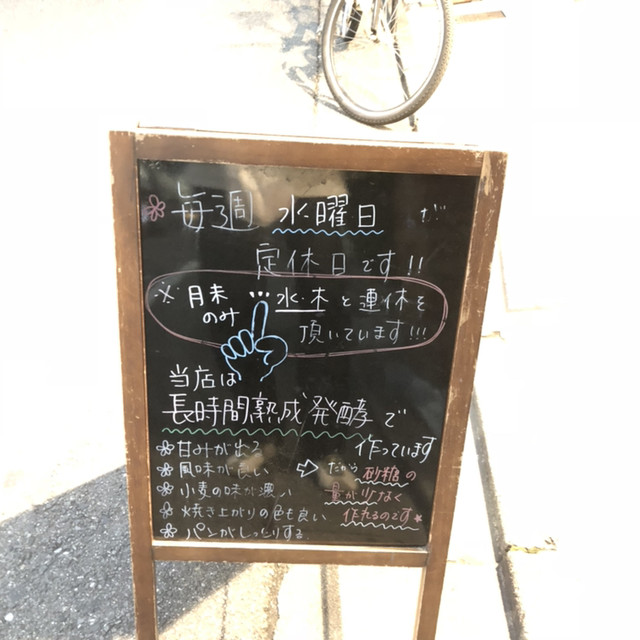 毎週 水曜日 が
定休日です!!
※月末のみ…水・木と連休を
頂いています!!!
当店は
長時間熟成発酵で
作っています
甘みが出る
風味が良い
小麦の味が濃い
焼き上がりの色も良い
パンがしっとりする
⇨ だから砂糖の
量が少なく
作れるのです★